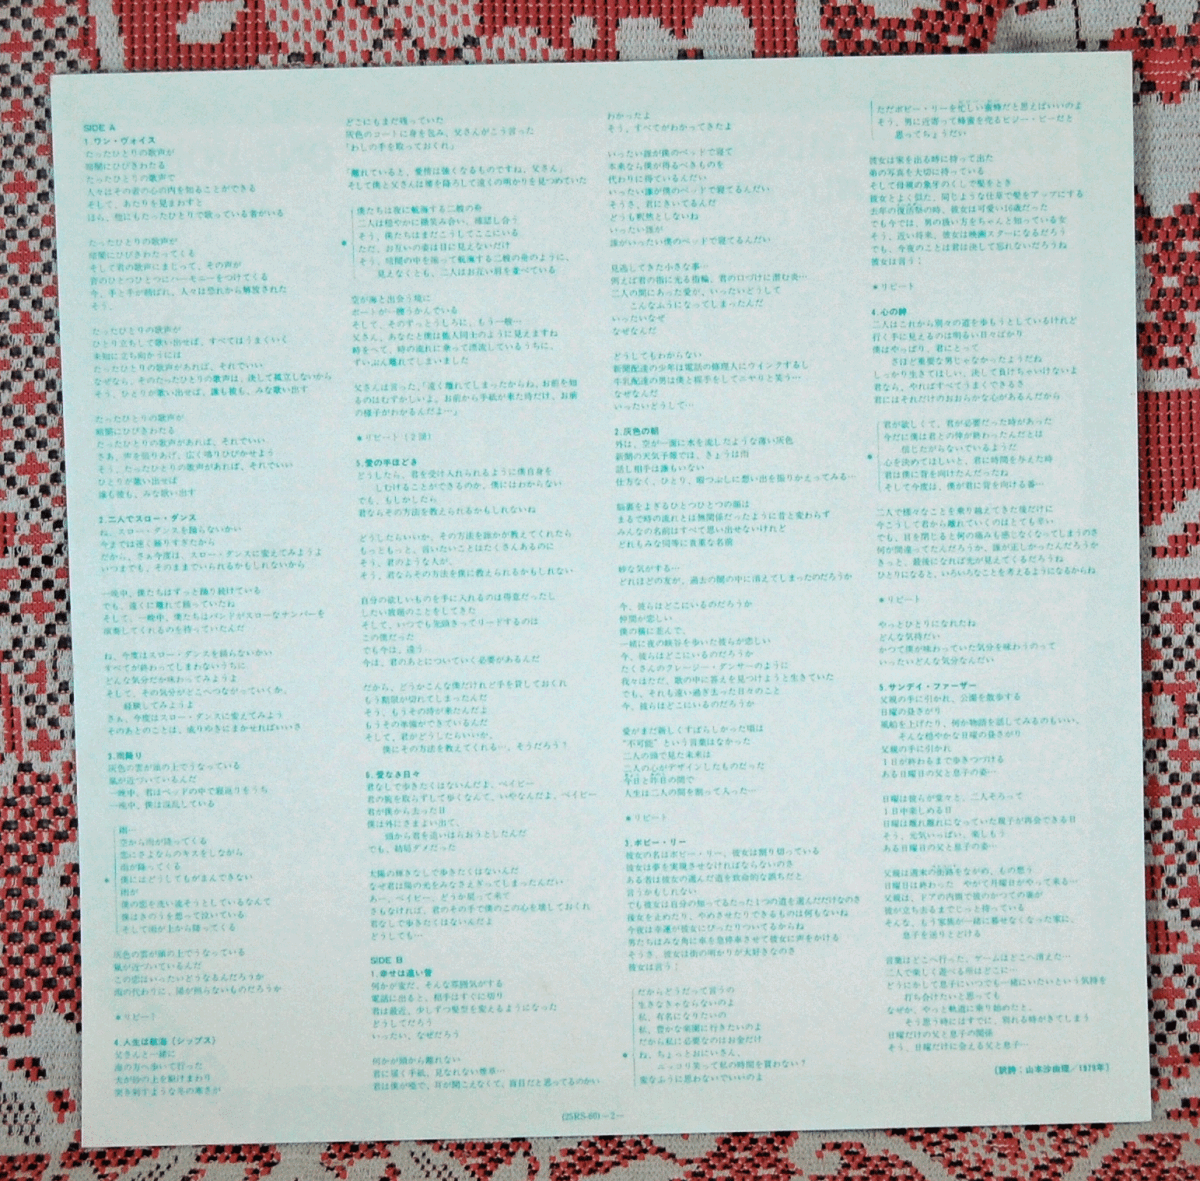 SIDE A
1.ワン・ヴォイス
たったひとりの歌声が
暗闇にひびきわたる
たったひとりの歌声で
人々はその君の心の内を知ることができる
そして、あたりを見まわすと
ほら、他にもたったひとりで歌っている者がいる
たったひとりの歌声が
暗闇にひびきわたってくる
そして君の歌声にまじって、その声が
音のひとつひとつにハーモニーをつけてくる
今、手と手が結ばれ、人々は恐れから解放された
そう、
たったひとりの歌声が
ひとり立ちして歌い出せば、すべてはうまくいく
未知に立ち向かうには
たったひとりの歌声があれば、それでいい
なぜなら、そのたったひとりの歌声は、決して孤立しないから
そう、ひとりが歌い出せば、誰も彼も、みな歌い出す
たったひとりの歌声が
暗闇にひびきわたる
たったひとりの歌声があれば、それでいい
さあ、声を張りあげ、広く鳴りひびかせよう
そう、たったひとりの歌声があれば、それでいい
ひとりが歌い出せば
誰も彼も、みな歌い出す
2.二人でスロー・ダンス
ね、スロー・ダンスを踊らないかい
今までは速く踊りすぎたから
だから、さぁ今度は、スロー・ダンスに変えてみようよ
いつまでも、そのままでいられるかもしれないから
一晩中、僕たちはずっと踊り続けている
でも、遠くに離れて踊っていたね
そして、一晩中、僕たちはバンドがスローなナンバーを
演奏してくれるのを待っていたんだ
ね、今度はスロー・ダンスを踊らないかい
すべてが終わってしまわないうちに
どんな気分だか味わってみようよ
そして、その気分がどこへつながっていくか、
経験してみようよ
さぁ、今度はスロー・ダンスに変えてみよう
そのあとのことは、成りゆきにまかせればいいさ
3.雨降り
灰色の雲が頭の上でうなっている
嵐が近づいているんだ
一晩中、君はベッドの中で寝返りをうち
一晩中、僕は混乱している
雨…
空から雨が降ってくる
恋にさよならのキスをしながら
雨が降ってくる
＊僕にはどうしてもがまんできない
雨が
僕の恋を洗い流そうとしているなんて
僕はきのうを思って泣いている
そして雨が上から降ってくる
灰色の雲が頭の上でうなっている
嵐が近づいているんだ
この恋はいったいどうなるんだろうか
雨の代わりに、陽が照らないものだろうか
＊リピート
4.人生は航海（シップス）
父さんと一緒に
海の方へ歩いて行った
犬が砂の上を駆けまわり
突き刺すような冬の寒さが
どこにもまだ残っていた
灰色のコートに身を包み、父さんがこう言った
「わしの手を取っておくれ」
「離れていると、愛情は強くなるものですね、父さん」
そして僕と父さんは腰を降ろして遠くの明かりを見つめていた
僕たちは夜に航海する二艘の舟
二人は穏やかに微笑み合い、確認し合う
そう、僕たちはまだこうしてここにいる
＊ただ、お互いの姿は目に見えないだけ
そう、暗闇の中を操って航海する二艘の舟のように、
見えなくとも、二人はお互い肩を並べている
空が海と出会う境に
ボートが一艘うかんでいる
そして、そのずっとうしろに、もう一艘…
父さん、あなたと僕は他人同士のように見えますね
時をへて、時の流れに乗って漂流しているうちに、
ずいぶん離れてしまいました
父さんは言った。「遠く離れてしまったからね。お前を知
るのはむずかしいよ。お前から手紙が来た時だけ、お前
の様子がわかるんだよ…」
＊リピート（2回）
5.愛の手ほどき
どうしたら、君を受け入れられるように僕自身を
しむけることができるのか、僕にはわからない
でも、もしかしたら
君ならその方法を教えられるかもしれないね
どうしたらいいか、その方法を誰かが教えてくれたら
もっともっと、言いたいことはたくさんあるのに
そう、君のような人が、
そう、君ならその方法を僕に教えられるかもしれない
自分の欲しいものを手に入れるのは得意だったし
したい放題のことをしてきた
そして、いつでも先頭きってリードするのは
この僕だった
でも今は、違う
今は、君のあとについていく必要があるんだ
だから、どうかこんな僕だけれど手を貸しておくれ
もう勘忍が切れてしまったんだ
そう、もうその時が来たんだよ
もうその準備ができているんだ
そして、君がどうしたらいいか、
僕にその方法を教えてくれる…、そうだろう？
6.愛なき日々
君なしで歩きたくはないんだよ、ベイビー
君の腕を取らずして歩くなんて、いやなんだよ、ベイビー
君が僕から去った日
僕は外にさまよい出て、
頭から君を追いはらおうとしたんだ
でも、結局ダメだった
太陽の輝きなしで歩きたくはないんだ
なぜ君は陽の光をみなさえぎってしまったんだい
あ〜、ベイビー、どうか戻って来て
さもなければ、君のその手で僕のこの心を壊しておくれ
君なしで歩きたくはないんだよ
どうしても…
SIDE B
1.幸せは遠い昔
何かが変だ、そんな雰囲気がする
電話に出ると、相手はすぐに切り
君は最近、少しずつ髪型を変えるようになった
どうしてだろう
いったい、なぜだろう
何かが頭から離れない
君に届く手紙、見なれない煙草…
君は僕が唖で、耳が聞こえなくて、盲目だと思ってるのかい
わかったよ
そう、すべてがわかってきたよ
いったい誰が僕のベッドで寝て
本来なら僕が得るべきものを
代わりに得ているんだい
いったい誰が僕のベッドで寝てるんだい
そうさ、君にきいてるんだ
どうも釈然としないね
いったい誰が
誰がいったい僕のベッドで寝てるんだい
見逃してきた小さな事…
例えば君の指に光る指輪、君の口づけに潜む炎…
二人の間にあった愛が、いったいどうして
こんなふうになってしまったんだ
いったいなぜ
なぜなんだ
どうしてもわからない
新聞配達の少年は電話の修理人にウインクするし
牛乳配達の男は僕と握手をしてニヤリと笑う…
なぜなんだ
いったいどうして…
2.灰色の朝
外は、空が一面に水を流したような薄い灰色
新聞の天気予報では、きょうは雨
話し相手は誰もいない
仕方なく、ひとり、暇つぶしに想い出を振りかえってみる…
脳裏をよぎるひとつひとつの顔は
まるで時の流れとは無関係だったように昔と変わらず
みんなの名前はすべて思い出せないけれど
どれもみな同等に貴重な名前
妙な気がする…
どれほどの友が、過去の闇の中に消えてしまったのだろうか
今、彼らはどこにいるのだろうか
仲間が恋しい
僕の横に並んで、
一緒に夜の峡谷を歩いた彼らが恋しい
今、彼らはどこにいるのだろうか
たくさんのクレージー・ダンサーのように
我々はただ、歌の中に答えを見つけようと生きていた
でも、それも遠い過ぎ去った日々のこと
今、彼らはどこにいるのだろうか
愛がまだ新しくすばらしかった頃は
“不可能”という言葉はなかった
二人の頭で見た未来は
二人の心がデザインしたものだった
今日と昨日の間で
人生は二人の間を割って入った…
＊リピート
3.ボビー・リー
彼女の名はボビー・リー、彼女は割り切っている
彼女は夢を実現させなければならないのさ
ある者は彼女の選んだ道を致命的な誤ちだと
言うかもしれない
でも彼女は自分の知ってるたった1つの道を選んだだけなのさ
彼女を止めたり、やめさせたりできるものは何もないね
今夜は幸運が彼女にぴったりついてるからね
男たちはみな角に車を急停車させて彼女に声をかける
そうさ、彼女は街の明かりが大好きなのさ
彼女は言う：
だからどうだって言うの
生きなきゃならないのよ
私、有名になりたいの
私、豊かな楽園に行きたいのよ
だから私に必要なのはお金だけ
＊ね、ちょっとおにいさん、
ニッコリ笑って私の時間を買わない？
変なふうに思わないでいいのよ
ただボビー・リーを忙しい蜜蜂だと思えばいいのよ
そう、男に近寄って蜂蜜を売るビジー・ビーだと
思ってちょうだい
彼女は家を出る時に持って出た
弟の写真を大切に持っている
そして母親の象牙のくしで髪をとき
彼女とよく似た、同じような仕草で髪をアップにする
去年の復活祭の時、彼女は可愛い16歳だった
でも今では、男の扱い方をちゃんと知っている女
そう、近い将来、彼女は映画スターになるだろう
でも、今夜のことは君は決して忘れないだろうね
彼女は言う：
＊リピート
4.心の絆
二人はこれから別々の道を歩もうとしているけれど
行く手に見えるのは明るい日々ばかり
僕はやっぱり、君にとって
さほど重要な男じゃなかったようだね
しっかり生きてほしい、決して負けちゃいけないよ
君なら、やればすべてうまくできるさ
君にはそれだけのおおらかな心があるんだから
君が欲しくて、君が必要だった時があった
今だに僕は君との仲が終わったんだとは
信じたがらないでいるようだ
＊心を決めてほしいと、君に時間を与えた時
君は僕に背を向けたんだったね
そして今度は、僕が君に背を向ける番…
二人で様々なことを乗り越えてきた後だけに
今こうして君から離れていくのはとても辛い
でも、目を閉じると何の痛みも感じなくなってしまうのさ
何が間違ってたんだろうか、誰が正しかったんだろうか
きっと、最後になれば光が見えてくるだろうね
ひとりになると、いろいろなことを考えるようになるからね
＊リピート
やっとひとりになれたね
どんな気持だい
かつて僕が味わっていた気分を味わうのって
いったいどんな気分なんだい
5.サンデイ・ファーザー
父親の手に引かれ、公園を散歩する
日曜の昼さがり
風船を上げたり、何か物語を話してみるのもいい、
そんな穏やかな日曜の昼さがり
父親の手に引かれ
1日が終わるまで歩きつづける
ある日曜日の父と息子の姿…
日曜は彼らが堂々と、二人そろって
1日中楽しめる日
日曜は離れ離れになっていた親子が再会できる日
そう、元気いっぱい、楽しもう
ある日曜日の父と息子の姿…
父親は週末の街路をながめ、もの想う
日曜日は終わった　やがて月曜日がやって来る…
父親は、ドアの内側で彼のかつての妻が
彼が立ち去るまでじっと待っている
そんな、もう家族が一緒に暮せなくなった家に、
息子を送りとどける
言葉はどこへ行った、ゲームはどこへ消えた…
二人で楽しく遊べる所はどこに…
どうにかして息子にいつでも一緒にいたいという気持を
打ち合けたいと思っても
なぜか、やっと軌道に乗り始めたと、
そう思う時にはすでに、別れる時がきてしまう
日曜だけの父と息子の関係
そう、日曜だけに会える父と息子…
〔訳詩：山本沙由理／1979年〕
(25RS-80)－2－